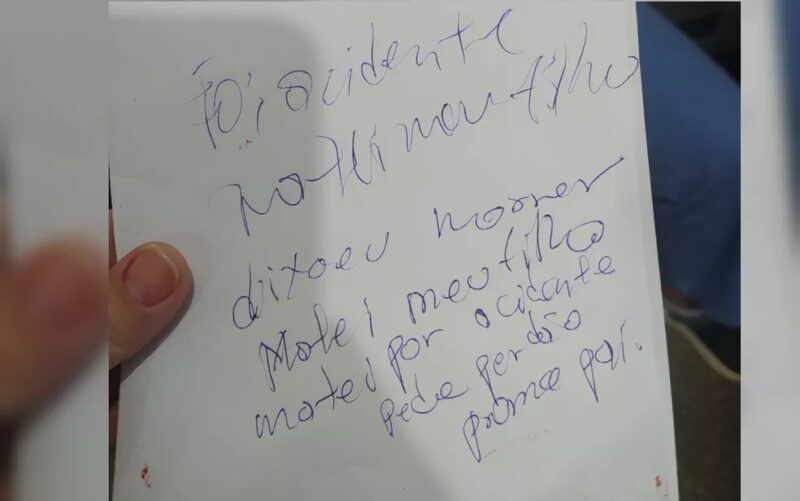 Foi acidente
matei meu filho
dixa eu morrer
Matei meu filho
matei por acidente
pede perdão
prome pai.